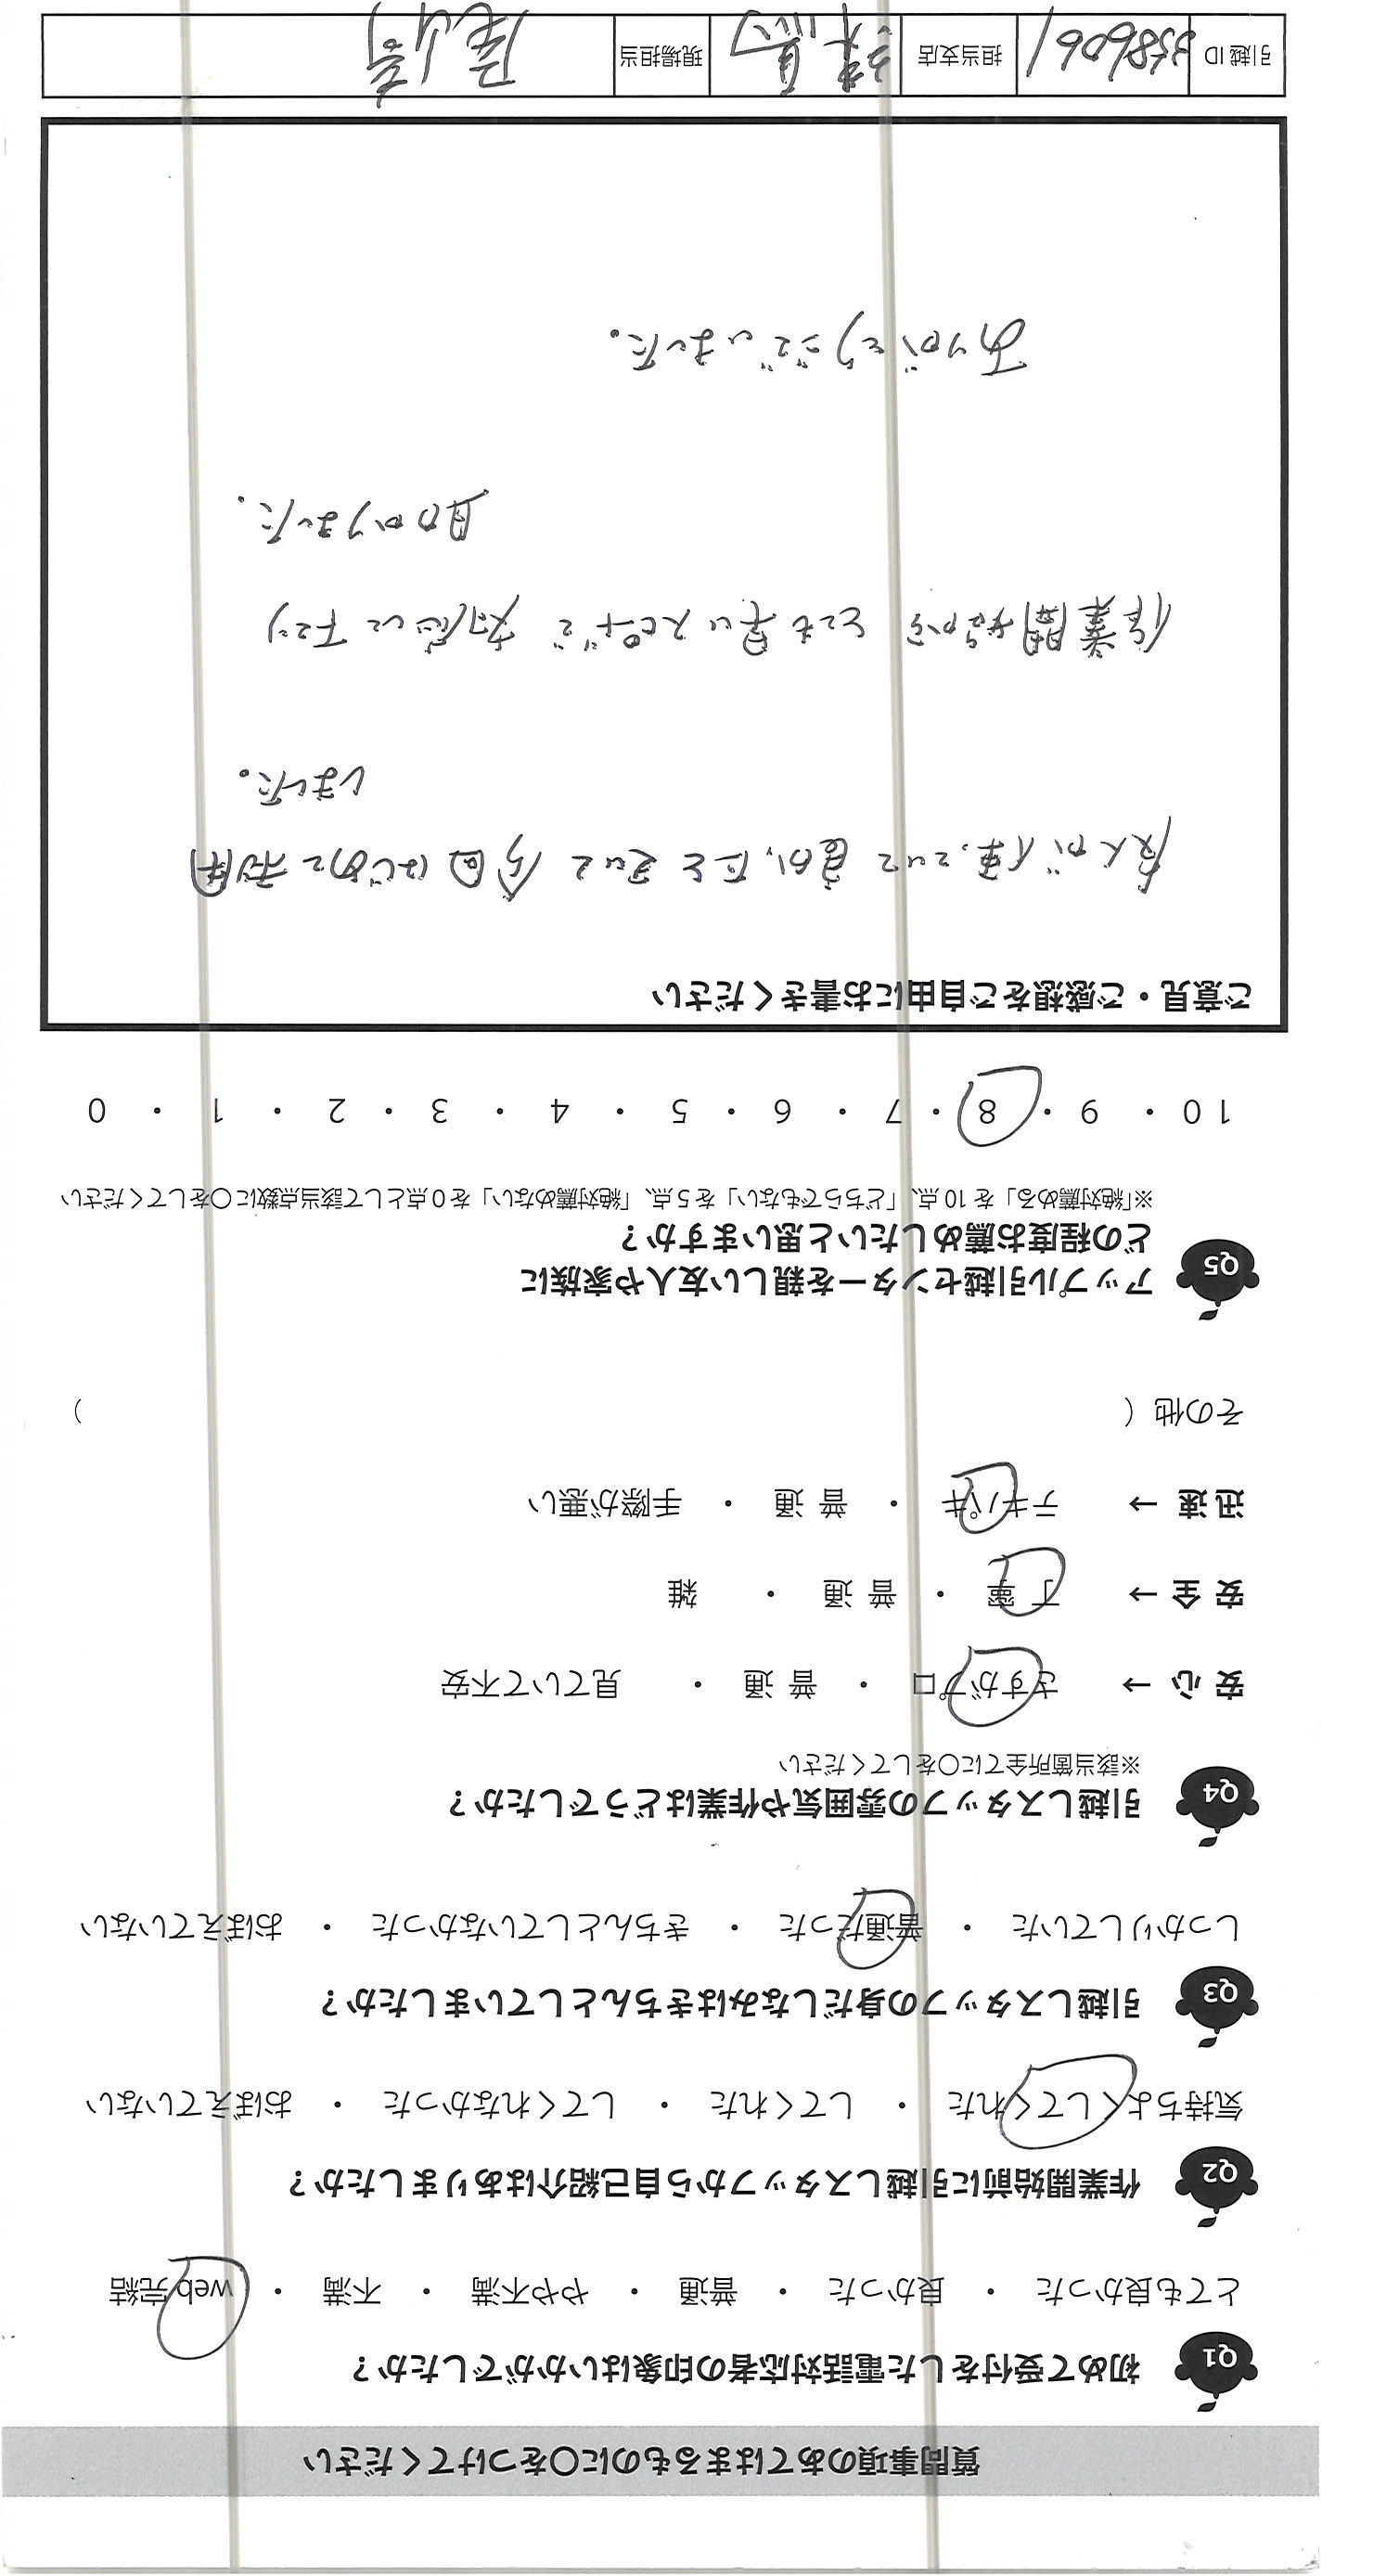 質問事項のあてはまるものに○をつけてください
Q1 初めて受付をした電話対応者の印象はいかがでしたか？
とても良かった ・ 良かった ・ 普通 ・ やや不満 ・ 不満 ・ web完結
Q2 作業開始前に引越しスタッフから自己紹介はありましたか？
気持ちよくしてくれた ・ してくれた ・ してくれなかった ・ おぼえていない
Q3 引越しスタッフの身だしなみはきちんとしていましたか？
しっかりしていた ・ 普通だった ・ きちんとしていなかった ・ おぼえていない
Q4 引越しスタッフの雰囲気や作業はどうでしたか？
※該当箇所全てに○をしてください
安心 → さすがプロ ・ 普通 ・ 見ていて不安
安全 → 丁寧 ・ 普通 ・ 雑
迅速 → テキパキ ・ 普通 ・ 手際が悪い
その他（ ）
Q5 アップル引越センターを親しい友人や家族に
どの程度お薦めしたいと思いますか？
※「絶対薦める」を10点、「どちらでもない」を5点、「絶対薦めない」を0点として該当点数に○をしてください
10 ・ 9 ・ 8 ・ 7 ・ 6 ・ 5 ・ 4 ・ 3 ・ 2 ・ 1 ・ 0
ご意見・ご感想をご自由にお書きください
友人が使っていて良かったと言いて今回はじめて利用
しました。
作業開始からとても早いスピードで対応して下さり
助かりました。
ありがとうございました。
引越ID 3586061 担当支店 練馬 現場担当 尾崎